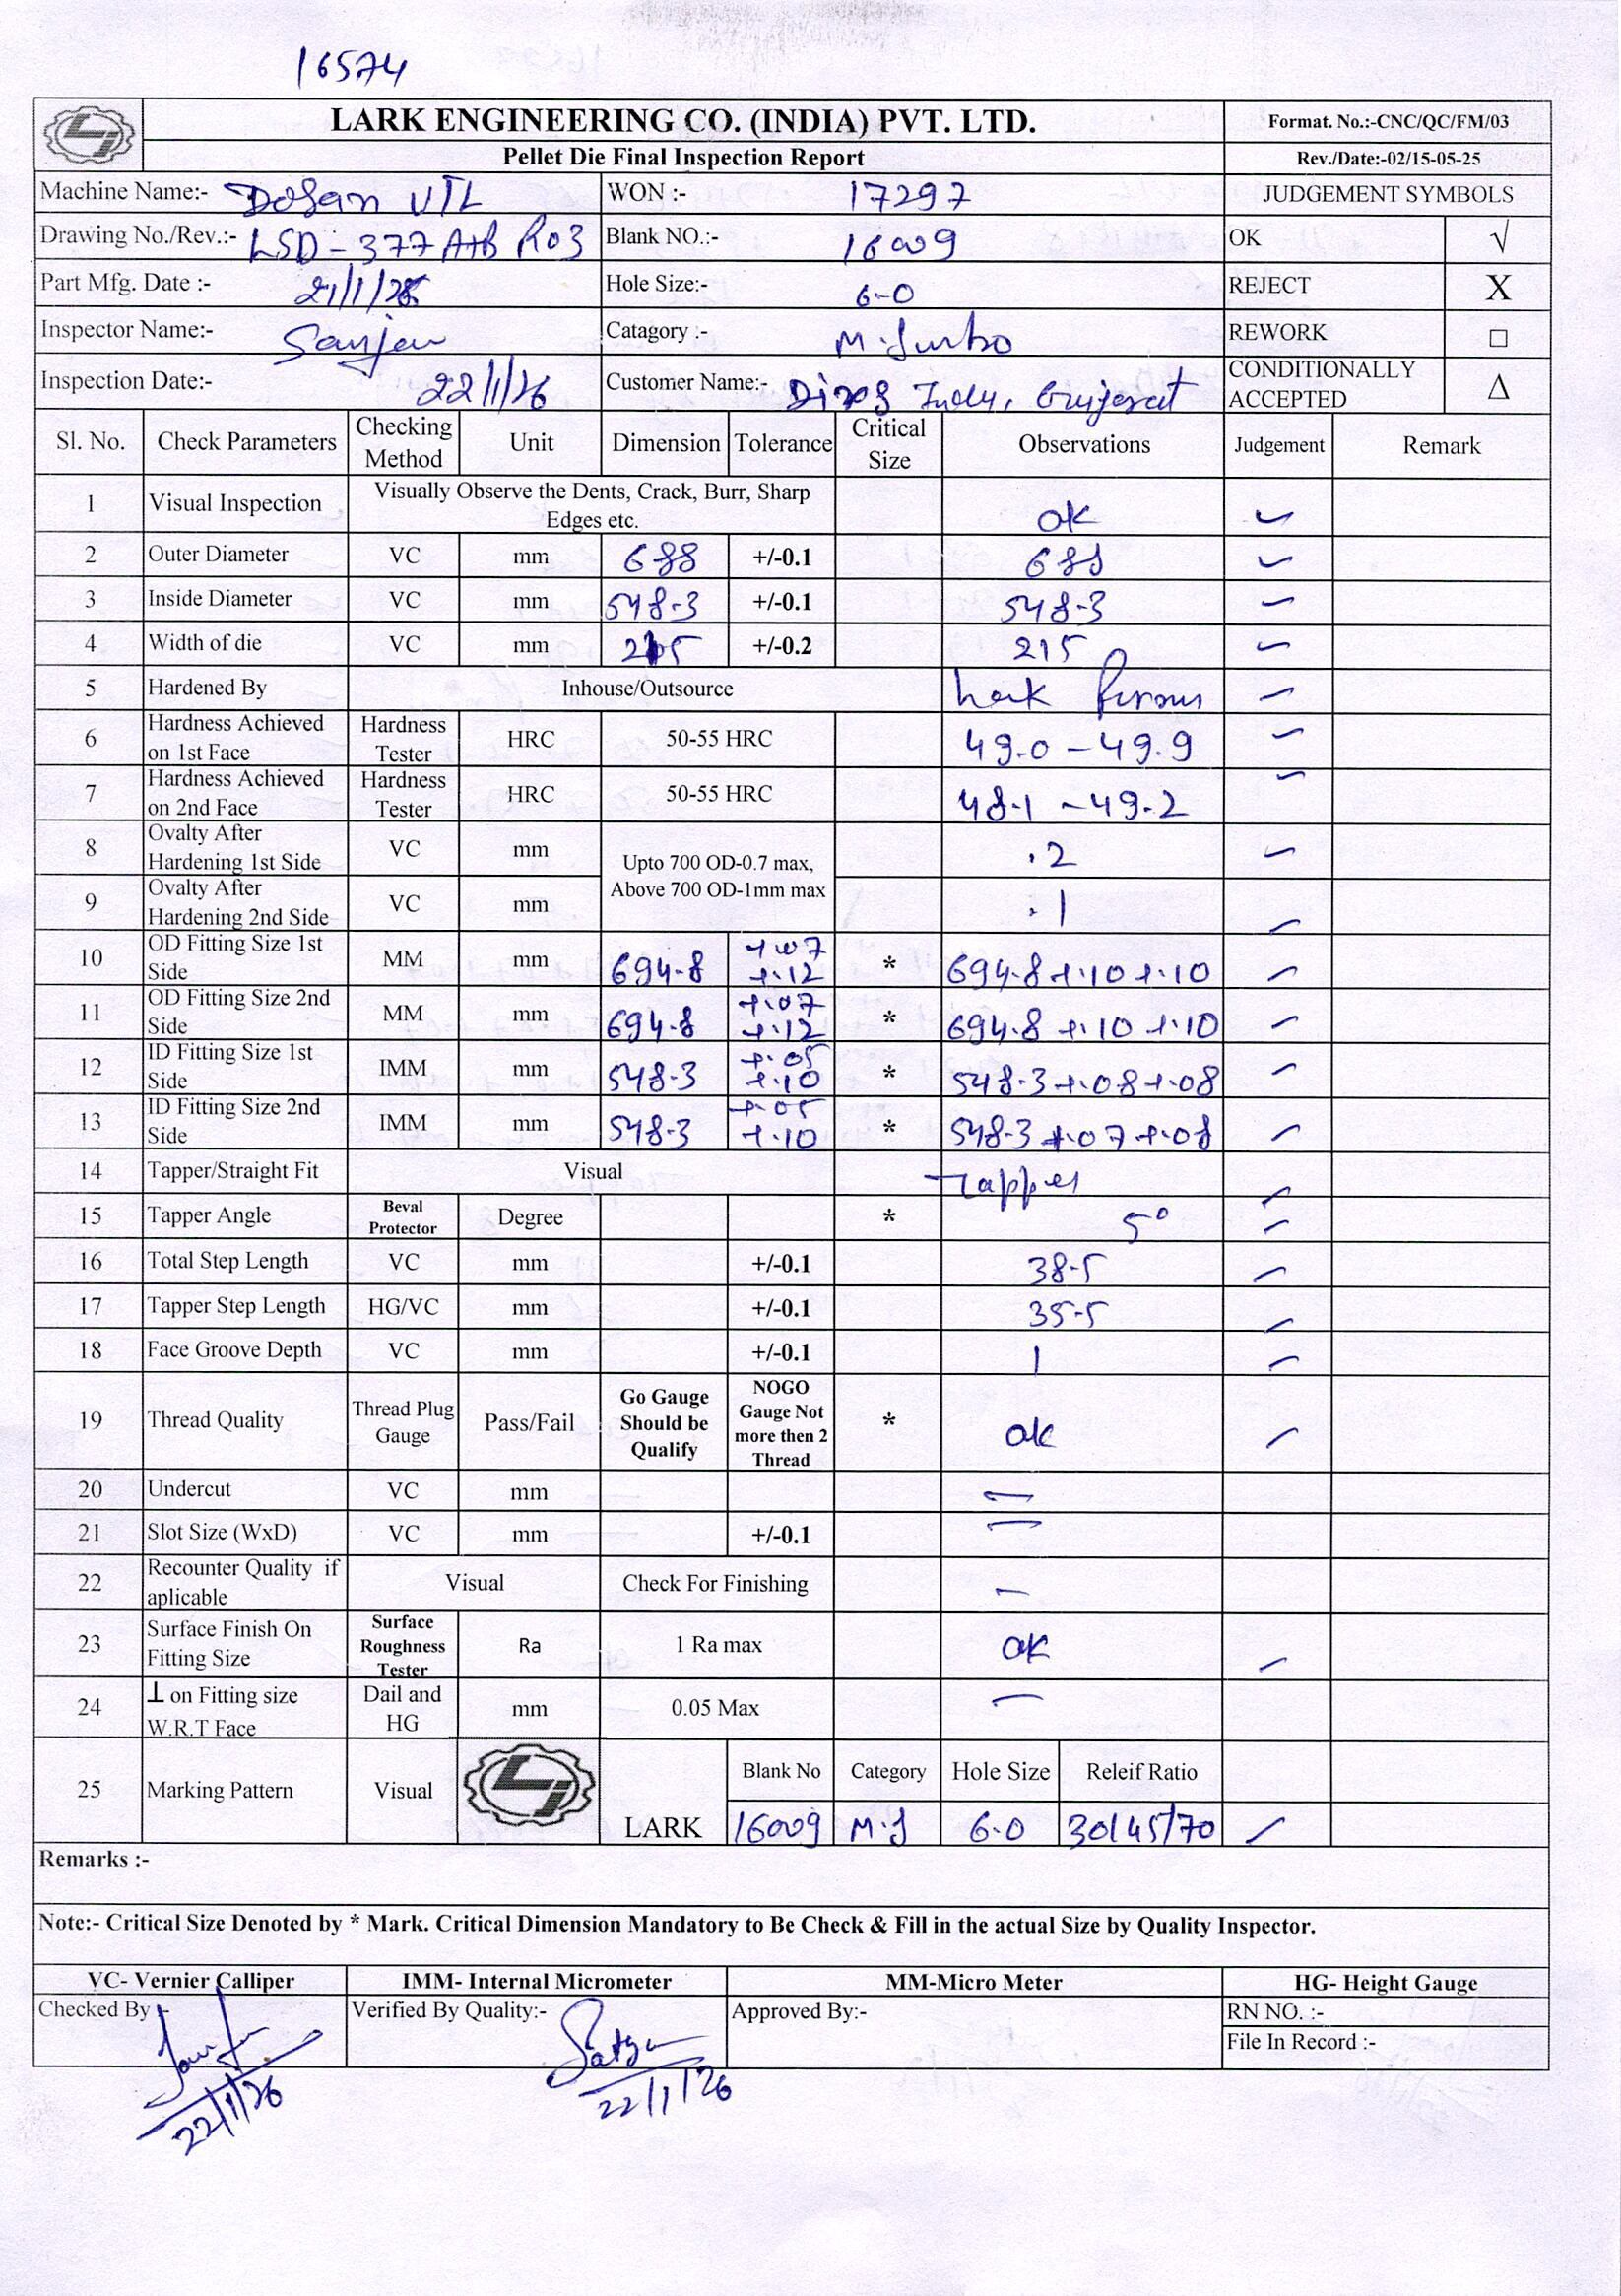 16574
LARK ENGINEERING CO. (INDIA) PVT. LTD. Format. No.:-CNC/QC/FM/03
Pellet Die Final Inspection Report Rev./Date:-02/15-05-25
Machine Name:- Dosan VTL WON :- 17297 JUDGEMENT SYMBOLS
Drawing No./Rev.:- LSD-377 A+B R03 Blank NO.:- 16009 OK √
Part Mfg. Date :- 21/1/26 Hole Size:- 6.0 REJECT X
Inspector Name:- Sanjeev Catagory :- M.Turbo REWORK □
Inspection Date:- 22/1/26 Customer Name:- Gujarat CONDITIONALLY ACCEPTED Δ
Sl. No. Check Parameters Checking Method Unit Dimension Tolerance Critical Size Observations Judgement Remark
1 Visual Inspection Visually Observe the Dents, Crack, Burr, Sharp Edges etc. ok ✓
2 Outer Diameter VC mm 688 +/-0.1 688 ✓
3 Inside Diameter VC mm 548.3 +/-0.1 548.3 ✓
4 Width of die VC mm 215 +/-0.2 215 ✓
5 Hardened By Inhouse/Outsource ✓
6 Hardness Achieved on 1st Face Hardness Tester HRC 50-55 HRC 49.0 - 49.9 ✓
7 Hardness Achieved on 2nd Face Hardness Tester HRC 50-55 HRC 48.1 - 49.2 ✓
8 Ovalty After Hardening 1st Side VC mm Upto 700 OD-0.7 max, Above 700 OD-1mm max .2 ✓
9 Ovalty After Hardening 2nd Side VC mm .1 ✓
10 OD Fitting Size 1st Side MM mm 694.8 +.07 +.12 * 694.8 +.10 +.10 ✓
11 OD Fitting Size 2nd Side MM mm 694.8 +.07 +.12 * 694.8 +.10 +.10 ✓
12 ID Fitting Size 1st Side IMM mm 548.3 +.05 +.10 * 548.3 +.08 +.08 ✓
13 ID Fitting Size 2nd Side IMM mm 548.3 +.05 +.10 * 548.3 +.07 +.08 ✓
14 Tapper/Straight Fit Visual Tapper ✓
15 Tapper Angle Beval Protector Degree * 5° ✓
16 Total Step Length VC mm +/-0.1 38.5 ✓
17 Tapper Step Length HG/VC mm +/-0.1 35.5 ✓
18 Face Groove Depth VC mm +/-0.1 1 ✓
19 Thread Quality Thread Plug Gauge Pass/Fail Go Gauge Should be Qualify NOGO Gauge Not more then 2 Thread * ok ✓
20 Undercut VC mm —
21 Slot Size (WxD) VC mm +/-0.1 —
22 Recounter Quality if aplicable Visual Check For Finishing —
23 Surface Finish On Fitting Size Surface Roughness Tester Ra 1 Ra max ok ✓
24 ⊥ on Fitting size W.R.T Face Dail and HG mm 0.05 Max —
25 Marking Pattern Visual LARK Blank No Category Hole Size Releif Ratio
16009 M.J 6.0 30/45/70 ✓
Remarks :-
Note:- Critical Size Denoted by * Mark. Critical Dimension Mandatory to Be Check & Fill in the actual Size by Quality Inspector.
VC- Vernier Calliper IMM- Internal Micrometer MM-Micro Meter HG- Height Gauge
Checked By :- Verified By Quality:- Satya Approved By:- RN NO. :-
File In Record :-
22/1/26 22/1/26